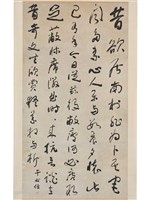 昔欲居南村非為卜其宅
聞多素心人樂與數晨夕懷此
頗有年今日從茲役敝廬何必廣取
足蔽床席鄰曲時時來抗言談在
昔奇文共欣賞疑義相與析 于右任